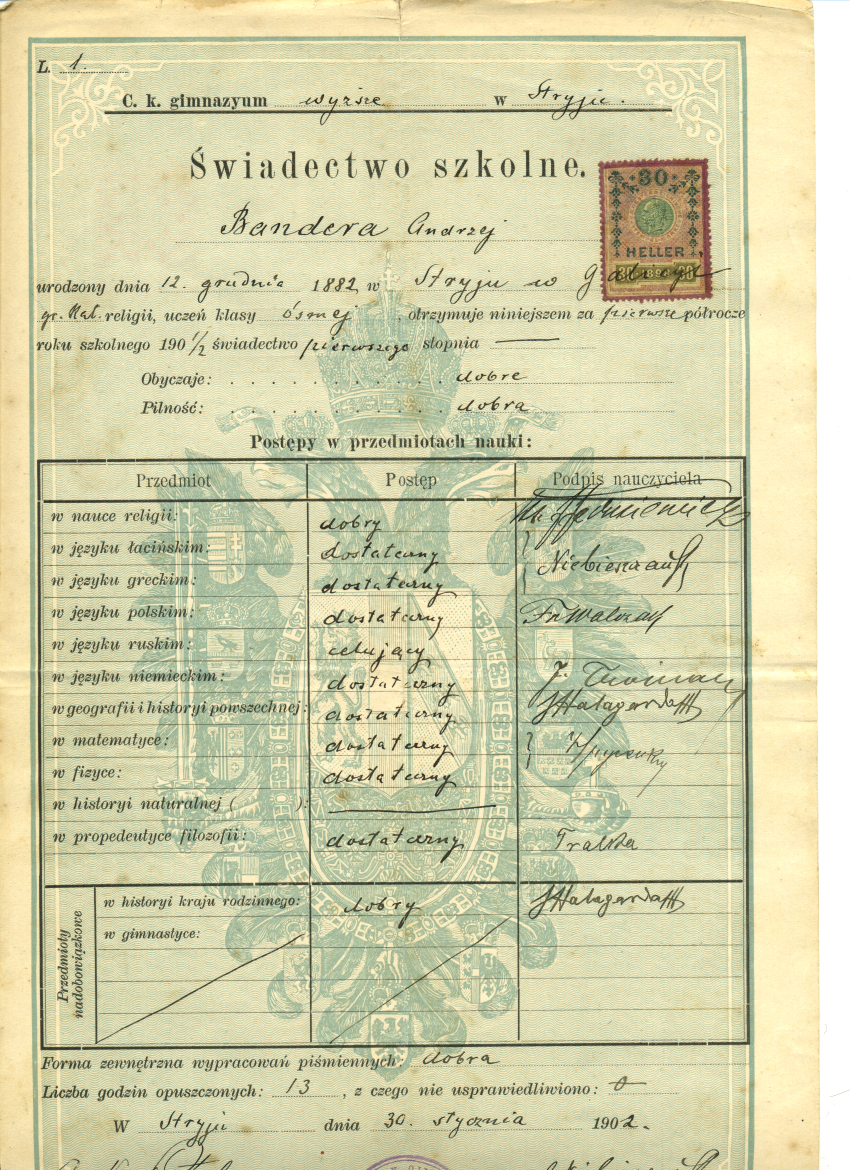 L. 1.
C. k. gimnazyum wyższe w Stryju.
Świadectwo szkolne.
30
HELLER
Bandera Andrzej
urodzony dnia 12. grudnia 1882 w Stryju w Galicyi
gr. kat. religii, uczeń klasy ósmej, otrzymuje niniejszem za pierwsze półrocze
roku szkolnego 190 1/2 świadectwo pierwszego stopnia —
Obyczaje: . . . . . . . . . . dobre
Pilność: . . . . . . . . . . dobra
Postępy w przedmiotach nauki:
Przedmiot Postęp Podpis nauczyciela
w nauce religii: dobry
w języku łacińskim: dostateczny
w języku greckim: dostateczny
w języku polskim: dostateczny Fr Walczak
w języku ruskim: celujący
w języku niemieckim: dostateczny
w geografii i historyi powszechnej: dostateczny
w matematyce: dostateczny
w fizyce: dostateczny
w historyi naturalnej ( ): —
w propedeutyce filozofii: dostateczny Tralka
Przedmioty nadobowiązkowe
w historyi kraju rodzinnego: dobry
w gimnastyce:
Forma zewnętrzna wypracowań piśmiennych: dobra
Liczba godzin opuszczonych: 13, z czego nie usprawiedliwiono: 0
W Stryju dnia 30. stycznia 1902.